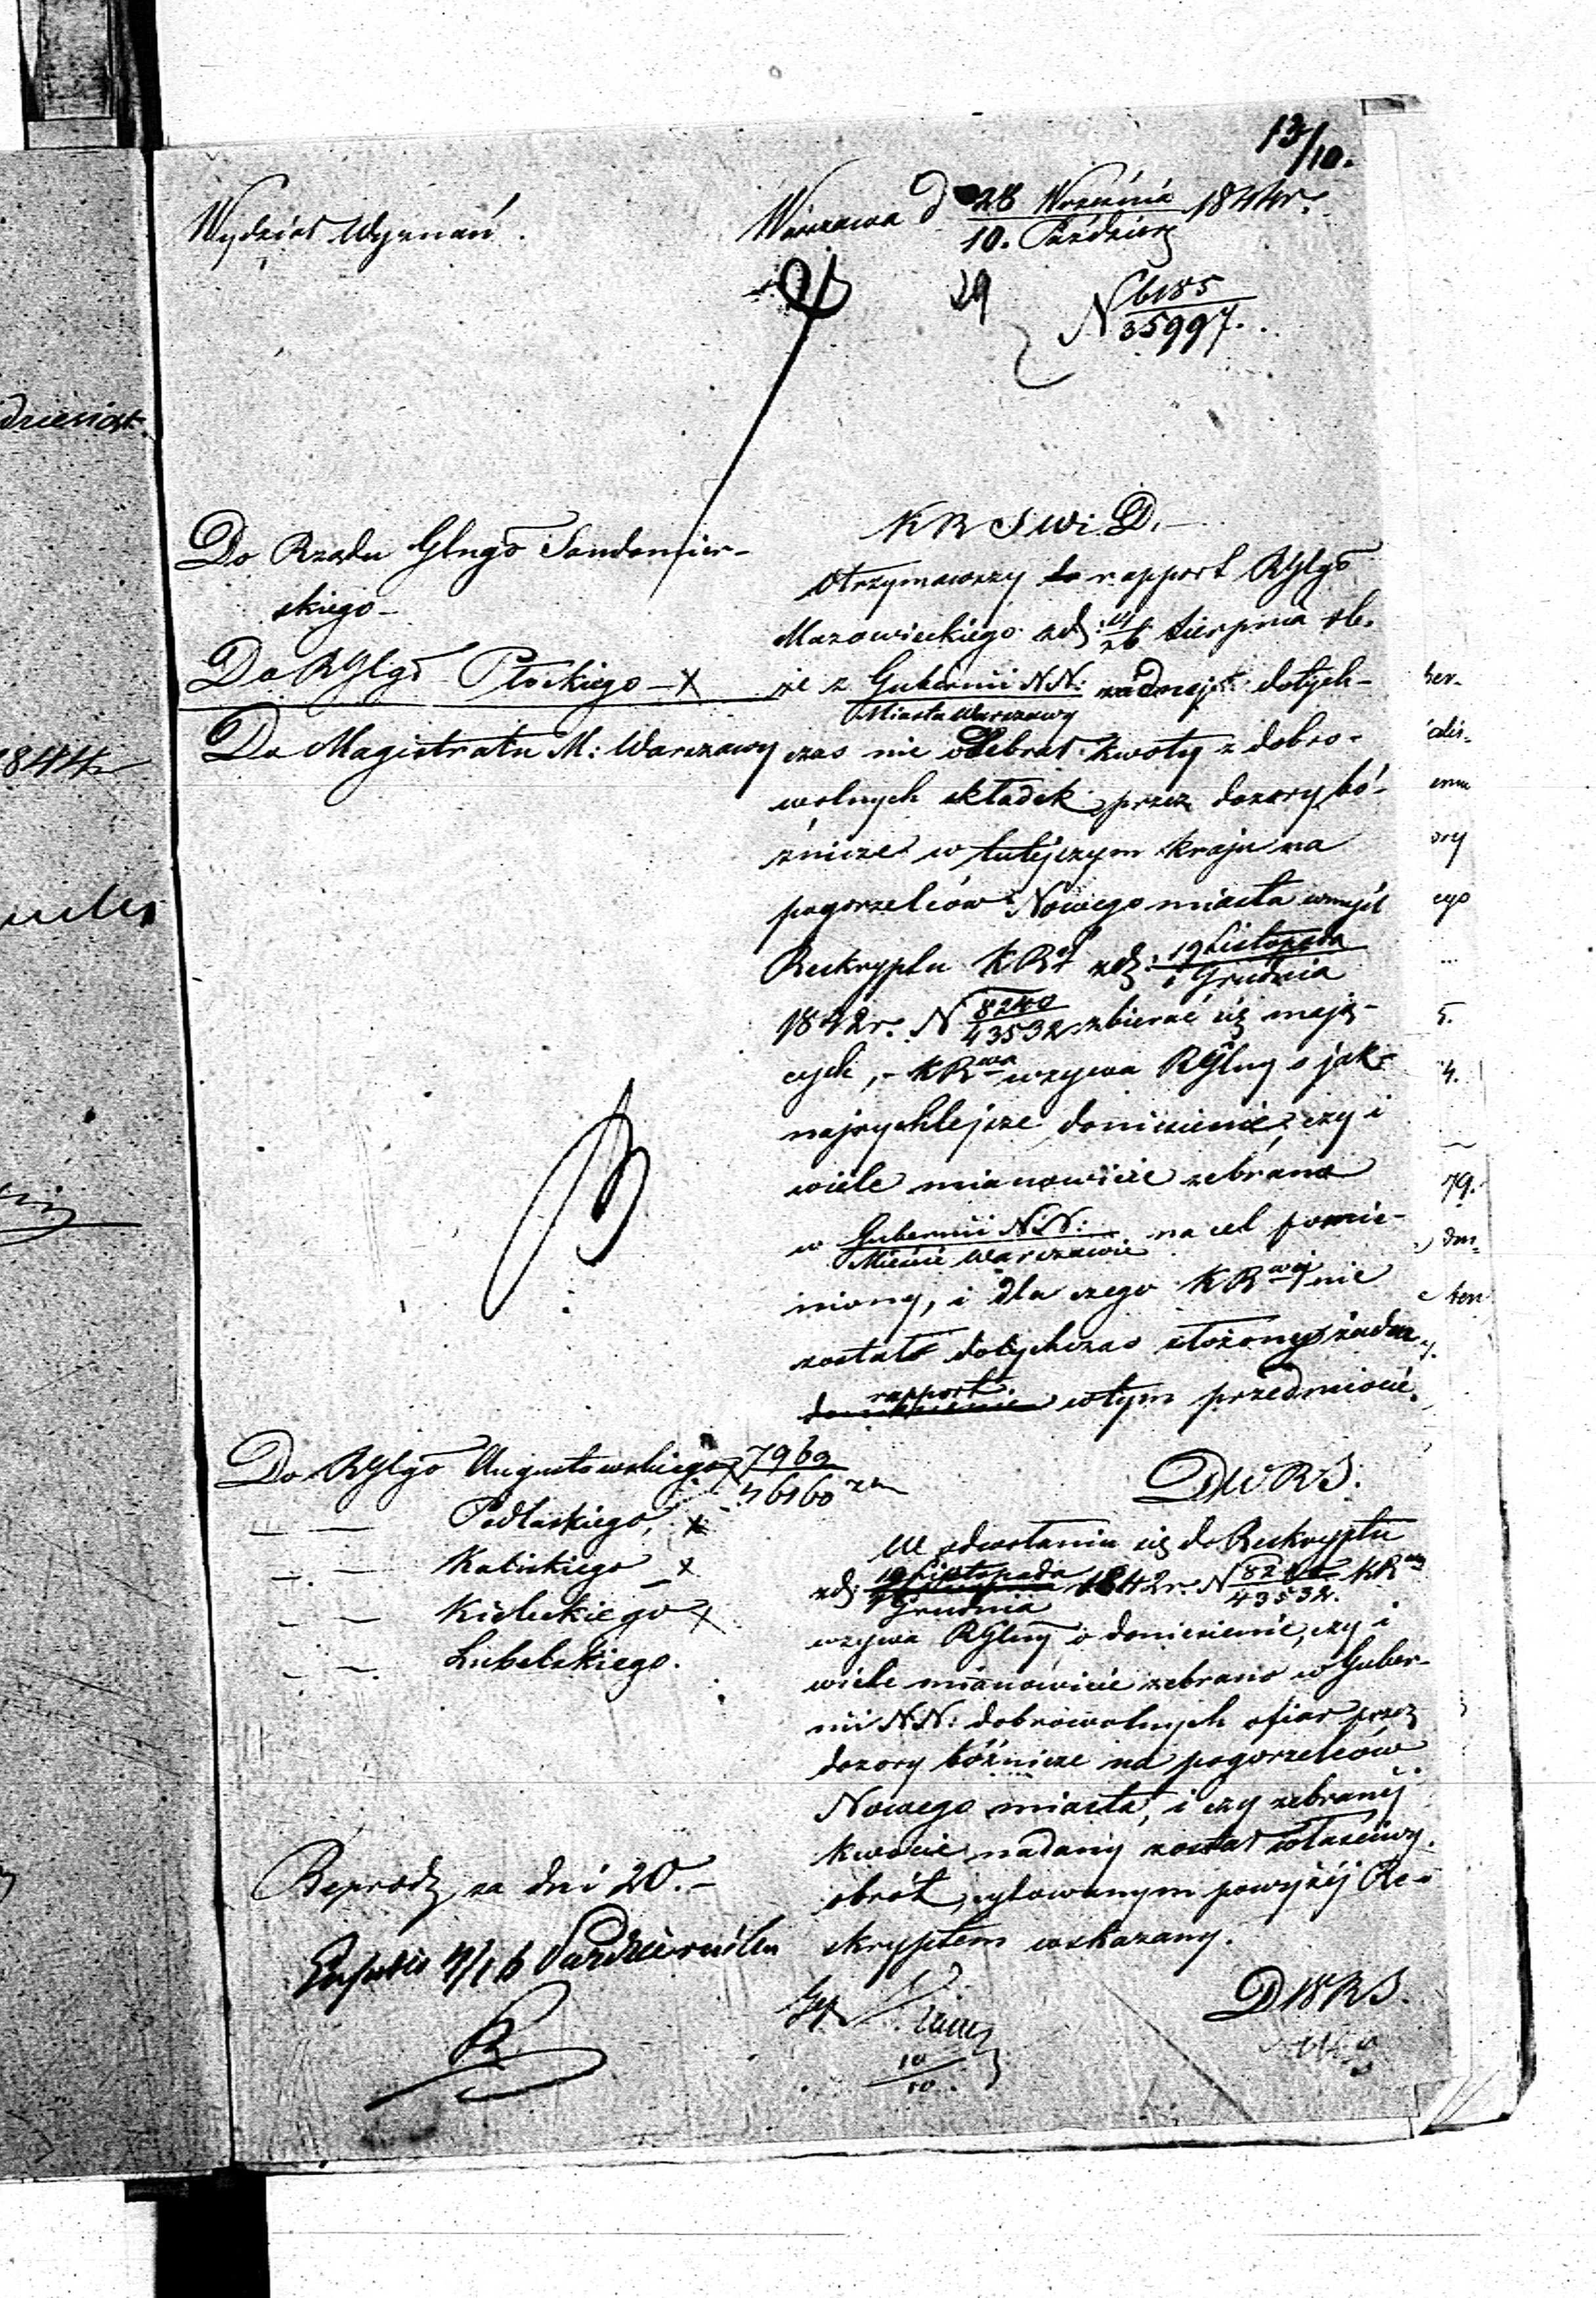 13/10.
Wydział Wyznań.
Warszawa d 28 Września / 10. Paździer 1844r.
29
N 6185 / 35997.
Do Rządu Glngō Sandomier-
skiego-
Do RGlgō Płockiego - x
Do Magistratu M: Warszawy
K R S W i D.-
Otrzymawszy rapport RGlgō
Mazowieckiego zd: 14/26 Sierpnia rb.
że z Gubernii N.N: / Miasta Warszawy żadnej dotych-
czas nie odebrał kwoty z dobro-
wolnych składek, przez dozory bó-
żnicze w tutejszym kraju na
pogorzelców Nowego miasta wmyśl
Reskryptu KR zd: 19 Listopada / 1 Grudnia
1842r. N 8240 / 43532 zbierać się mają-
cych, - KRwa wzywa RGlny o jak-
najrychlejsze doniesienie, czy i
wiele mianowicie zebrano
w Gubernii N.N: / Mieście Warszawie na cel pomie-
niony, i dla czego KRwej nie
został dotychczas złożony żaden
rapport. w tym przedmiocie.
DWRS.
Do RGlgō Augustowskiego x 7963 / 46160
— — Podlaskiego, x
— — Kaliskiego x
— — Kieleckiego x
— — Lubelskiego.
W odwołaniu się do Reskryptu
zd: 19 Listopada / 1 Grudnia 1842r. N 8240 / 43532. KRwa
wzywa RGlny o doniesienie, czy i
wiele mianowicie zebrano w Guber-
nii N.N: dobrowolnych ofiar przez
dozory bóżnicze na pogorzelców
Nowego miasta, i czy zebranéj
kwocie nadany został właściwy
obrót, cytowanym powyżéj Re-
skryptem wskazany.
DWRS.
Reprod za dni 20.-
4/16 Października
10/10.